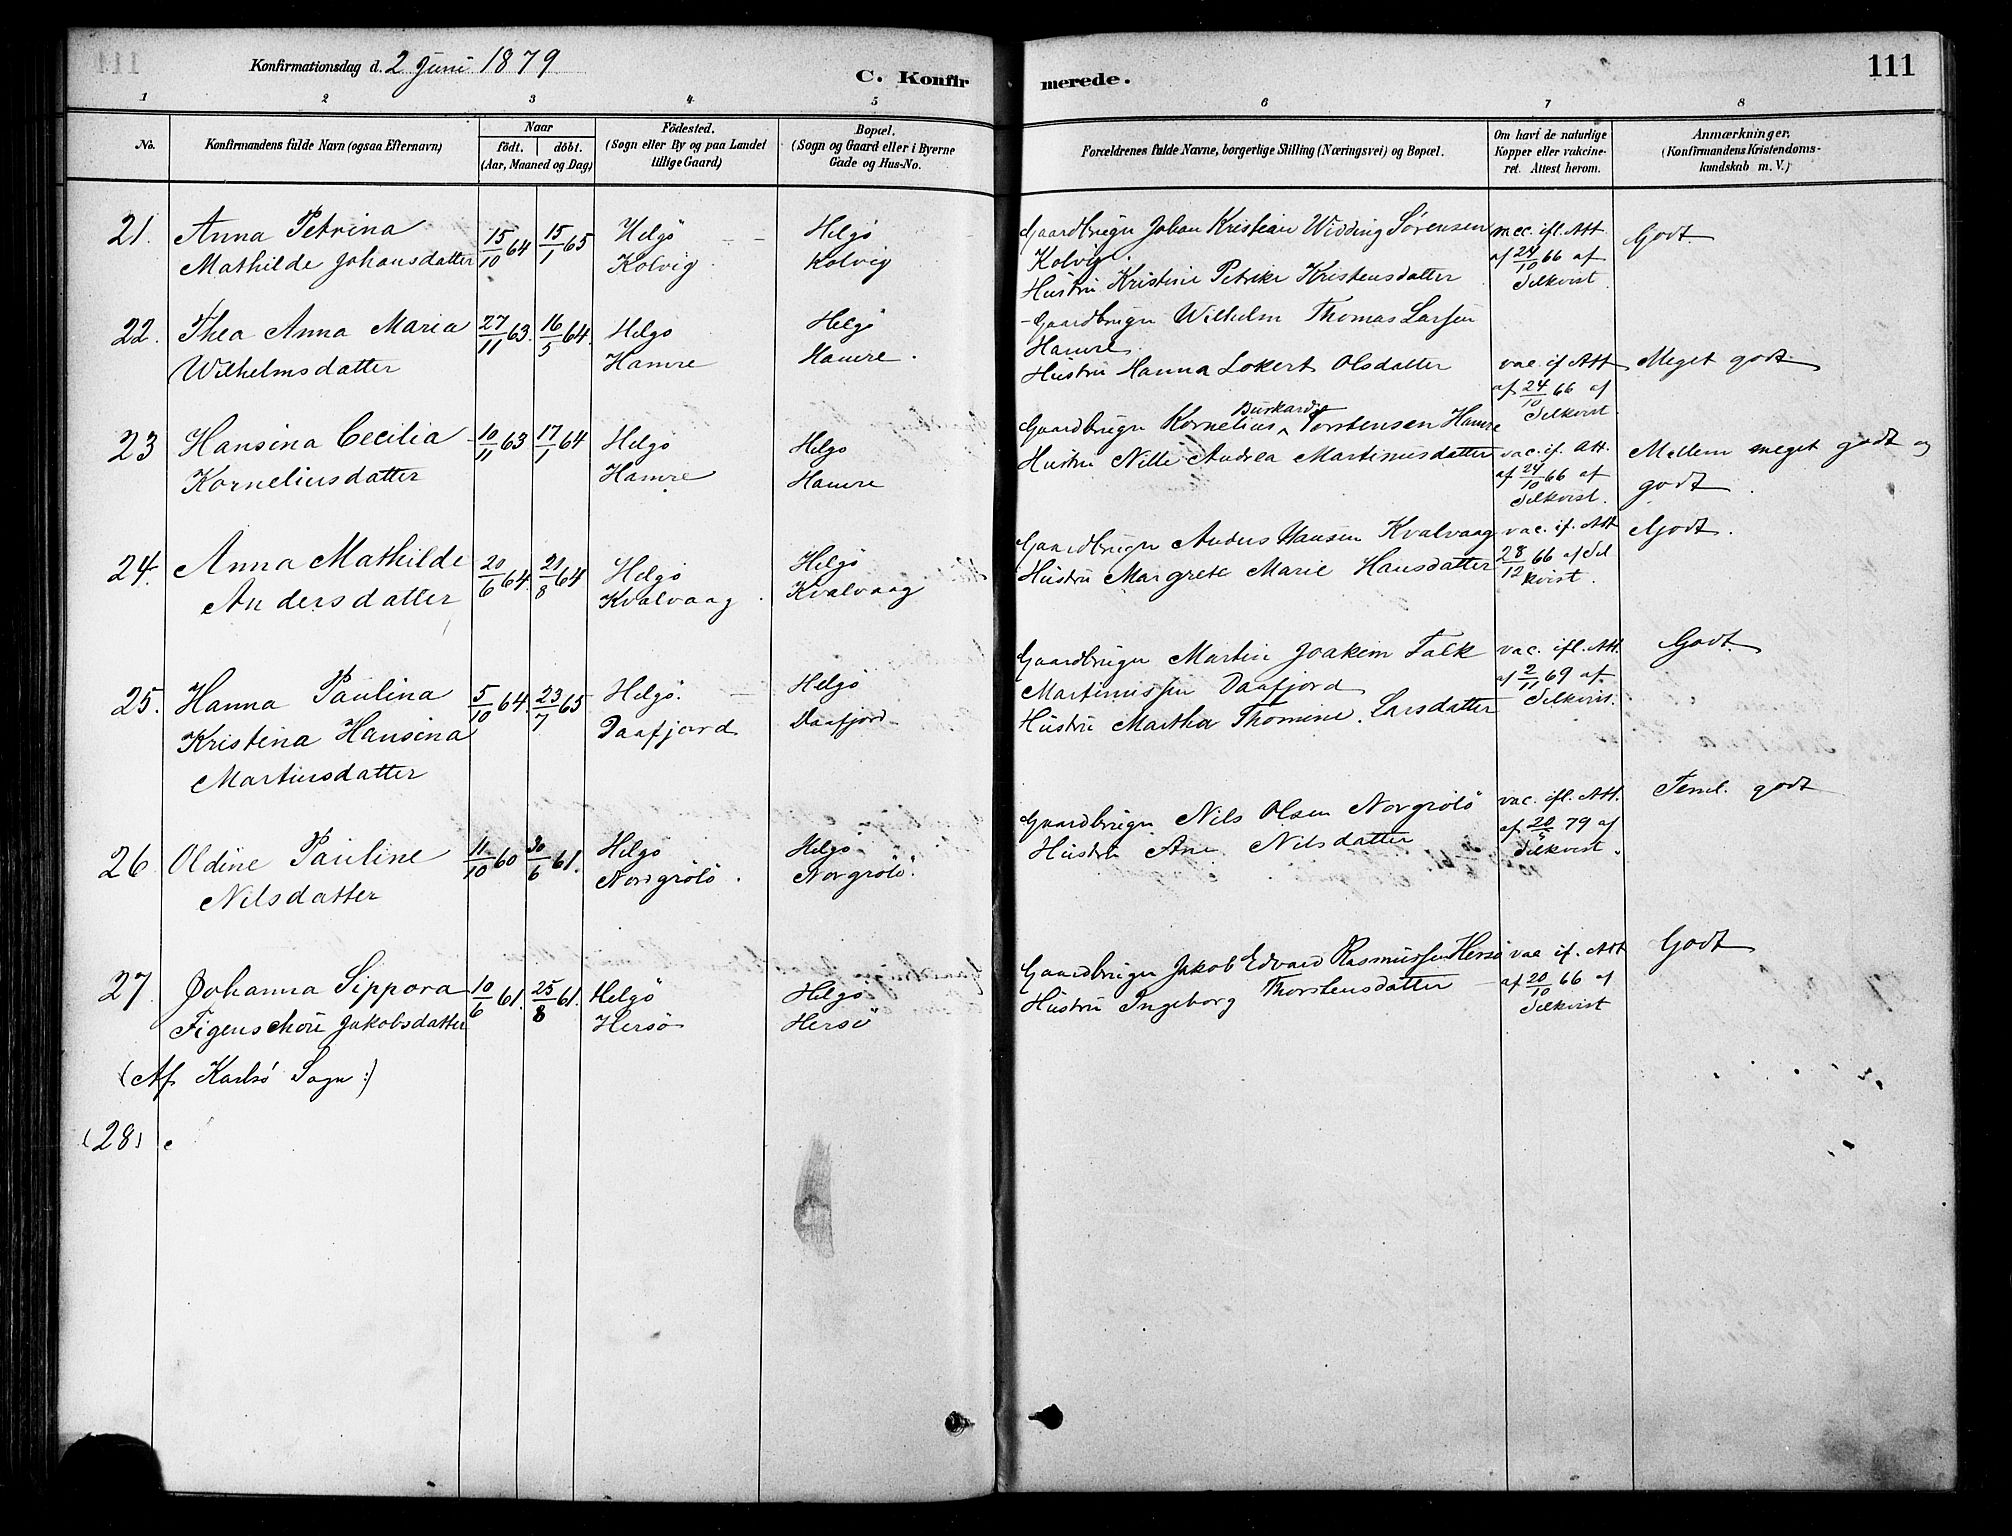 Konfirmationsdag d. 2 Juni 1879
C. Konfirmerede.
111
1 2 3 4 5 6 7 8
No.
Konfirmandens fulde Navn (ogsaa Efternavn)
Naar
födt. döbt.
(Aar, Maaned og Dag)
Födested.
(Sogn eller By og paa Landet
tillige Gaard)
Bopæl.
(Sogn og Gaard eller i Byerne
Gade og Hus-No.
Forældrenes fulde Navne, borgerlige Stilling (Næringsvei) og Bopæl.
Om havt de naturlige
Kopper eller vakcine-
ret. Attest herom.
Anmærkninger.
(Konfirmandens Kristendoms-
kundskab m. V.)
21. Anna Petrina
Mathilde Johansdatter
15/10 64 15/1 65
Helgö
Kolvig
Helgö
Kolvig
Gaardbruger Johan Kristian Widding Sørensen
Kolvig.
Hustru Kristine Petrike Kristensdatter
vac. ifl. Att.
af 24/10 66 af
Selkvist
Godt.
22. Thea Anna Maria
Wilhelmsdatter
27/11 63. 16/5 64.
Helgö
Hamre
Helgö
Hamre.
Gaardbruger Wilhelm Thomas Larsen
Hamre.
Hustru Hanna Lokert Olsdatter
vac. if Att
af 24/10 66 af
Selkvist.
Meget godt.
23 Hansina Cecilia
Korneliusdatter
10/11 63 17/1 64
Helgö
Hamre
Helgö
Hamre
Gaardbruger Kornelius Burkardus Torstensen Hamre
Hustru Nille Andrea Martinusdatter
vac. if. Att.
af 24/10 66 af
Selkvist.
Mellem meget godt og
godt.
24. Anna Mathilde
Andersdatter
20/6 64. 21/8 64
Helgö
Kvalvaag.
Helgö
Kvalvaag
Gaardbruger Anders Hansen Kvalvaag
Hustru Margrete Marie Hansdatter
vac. if. Att
28/12 66 af Sel
kvist.
Godt.
25. Hanna Paulina
Kristina Hansina
Martinsdatter
5/10 64. 23/7 65
Helgö.
Daafjord
Helgö
Daafjord
Gaardbruger Martin Joakim Falk
Martinussen Daafjord
Hustru Martha Thomine Larsdatter
vac. ifl. Att.
af 2/11 69 af
Selkvist.
Godt.
26. Oldine Pauline
Nilsdatter
11/10 60 30/6 61.
Helgö
Nordgrötö.
Helgö
Norgrötö.
Gaardbruger Nils Olsen Norgrötö
Hustru Ane Nilsdatter
vac. ifl. Att.
af 20/5 79 af
Selkvist.
Teml. godt
27. Johanna Sippora
Figenschou Jakobsdatter
(Af Karlsö Sogn:)
10/6 61. 25/8 61.
Helgö
Hersö
Helgö
Hersö
Gaardbruger Jakob Edvard Rasmussen Hersö
Hustru Ingeborg Thorstensdatter
vac if. Att
af 20/10 66 af
Selkvist
Godt
(28)